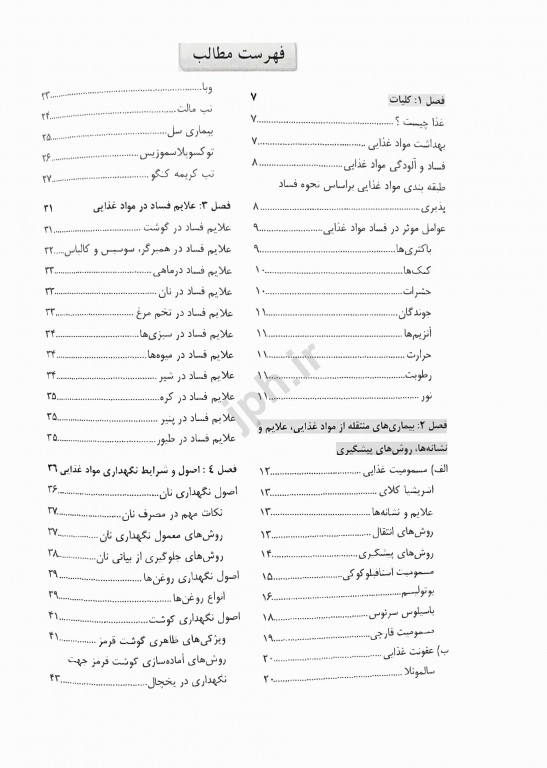 فهرست مطالب
فصل ۱: کلیات ۷
غذا چیست ؟ ۷
بهداشت مواد غذایی ۷
فساد و آلودگی مواد غذایی ۸
طبقه بندی مواد غذایی براساس نحوه فساد
پذیری ۸
عوامل موثر در فساد مواد غذایی ۹
باکتری‌ها ۹
کپک‌ها ۱۰
حشرات ۱۰
جوندگان ۱۱
آنزیم‌ها ۱۱
حرارت ۱۱
رطوبت ۱۱
نور ۱۱
فصل ۲: بیماری‌های منتقله از مواد غذایی، علایم و
نشانه‌ها، روش‌های پیشگیری
الف) مسمومیت غذایی ۱۲
اشریشیا کلای ۱۳
علایم و نشانه‌ها ۱۳
روش‌های انتقال ۱۳
روش‌های پیشگیری ۱۴
مسمومیت استافیلوکوکی ۱۵
بوتولیسم ۱۶
باسیلوس سرئوس ۱۸
مسمومیت قارچی ۱۹
ب) عفونت غذایی ۲۰
سالمونلا ۲۰
وبا ۲۳
تب مالت ۲۴
بیماری سل ۲۵
توکسوپلاسموزیس ۲۶
تب کریمه کنگو ۲۷
فصل ۳: علایم فساد در مواد غذایی ۳۱
علایم فساد در گوشت ۳۱
علایم فساد در همبرگر، سوسیس و کالباس ۳۲
علایم فساد درماهی ۳۳
علایم فساد در نان ۳۳
علایم فساد در تخم مرغ ۳۳
علایم فساد در سبزی‌ها ۳۴
علایم فساد در میوه‌ها ۳۴
علایم فساد در شیر ۳۴
علایم فساد در کره ۳۵
علایم فساد در پنیر ۳۵
علایم فساد در طیور ۳۵
فصل ۴ : اصول و شرایط نگهداری مواد غذایی ۳۶
اصول نگهداری نان ۳۶
نکات مهم در مصرف نان ۳۷
روش‌های معمول نگهداری نان ۳۷
روش‌های جلوگیری از بیاتی نان ۳۸
اصول نگهداری روغن‌ها ۳۹
انواع روغن‌ها ۳۹
اصول نگهداری گوشت ۴۱
ویژگی‌های ظاهری گوشت قرمز ۴۱
روش‌های آماده‌سازی گوشت قرمز جهت
نگهداری در یخچال ۴۳
jph.ir